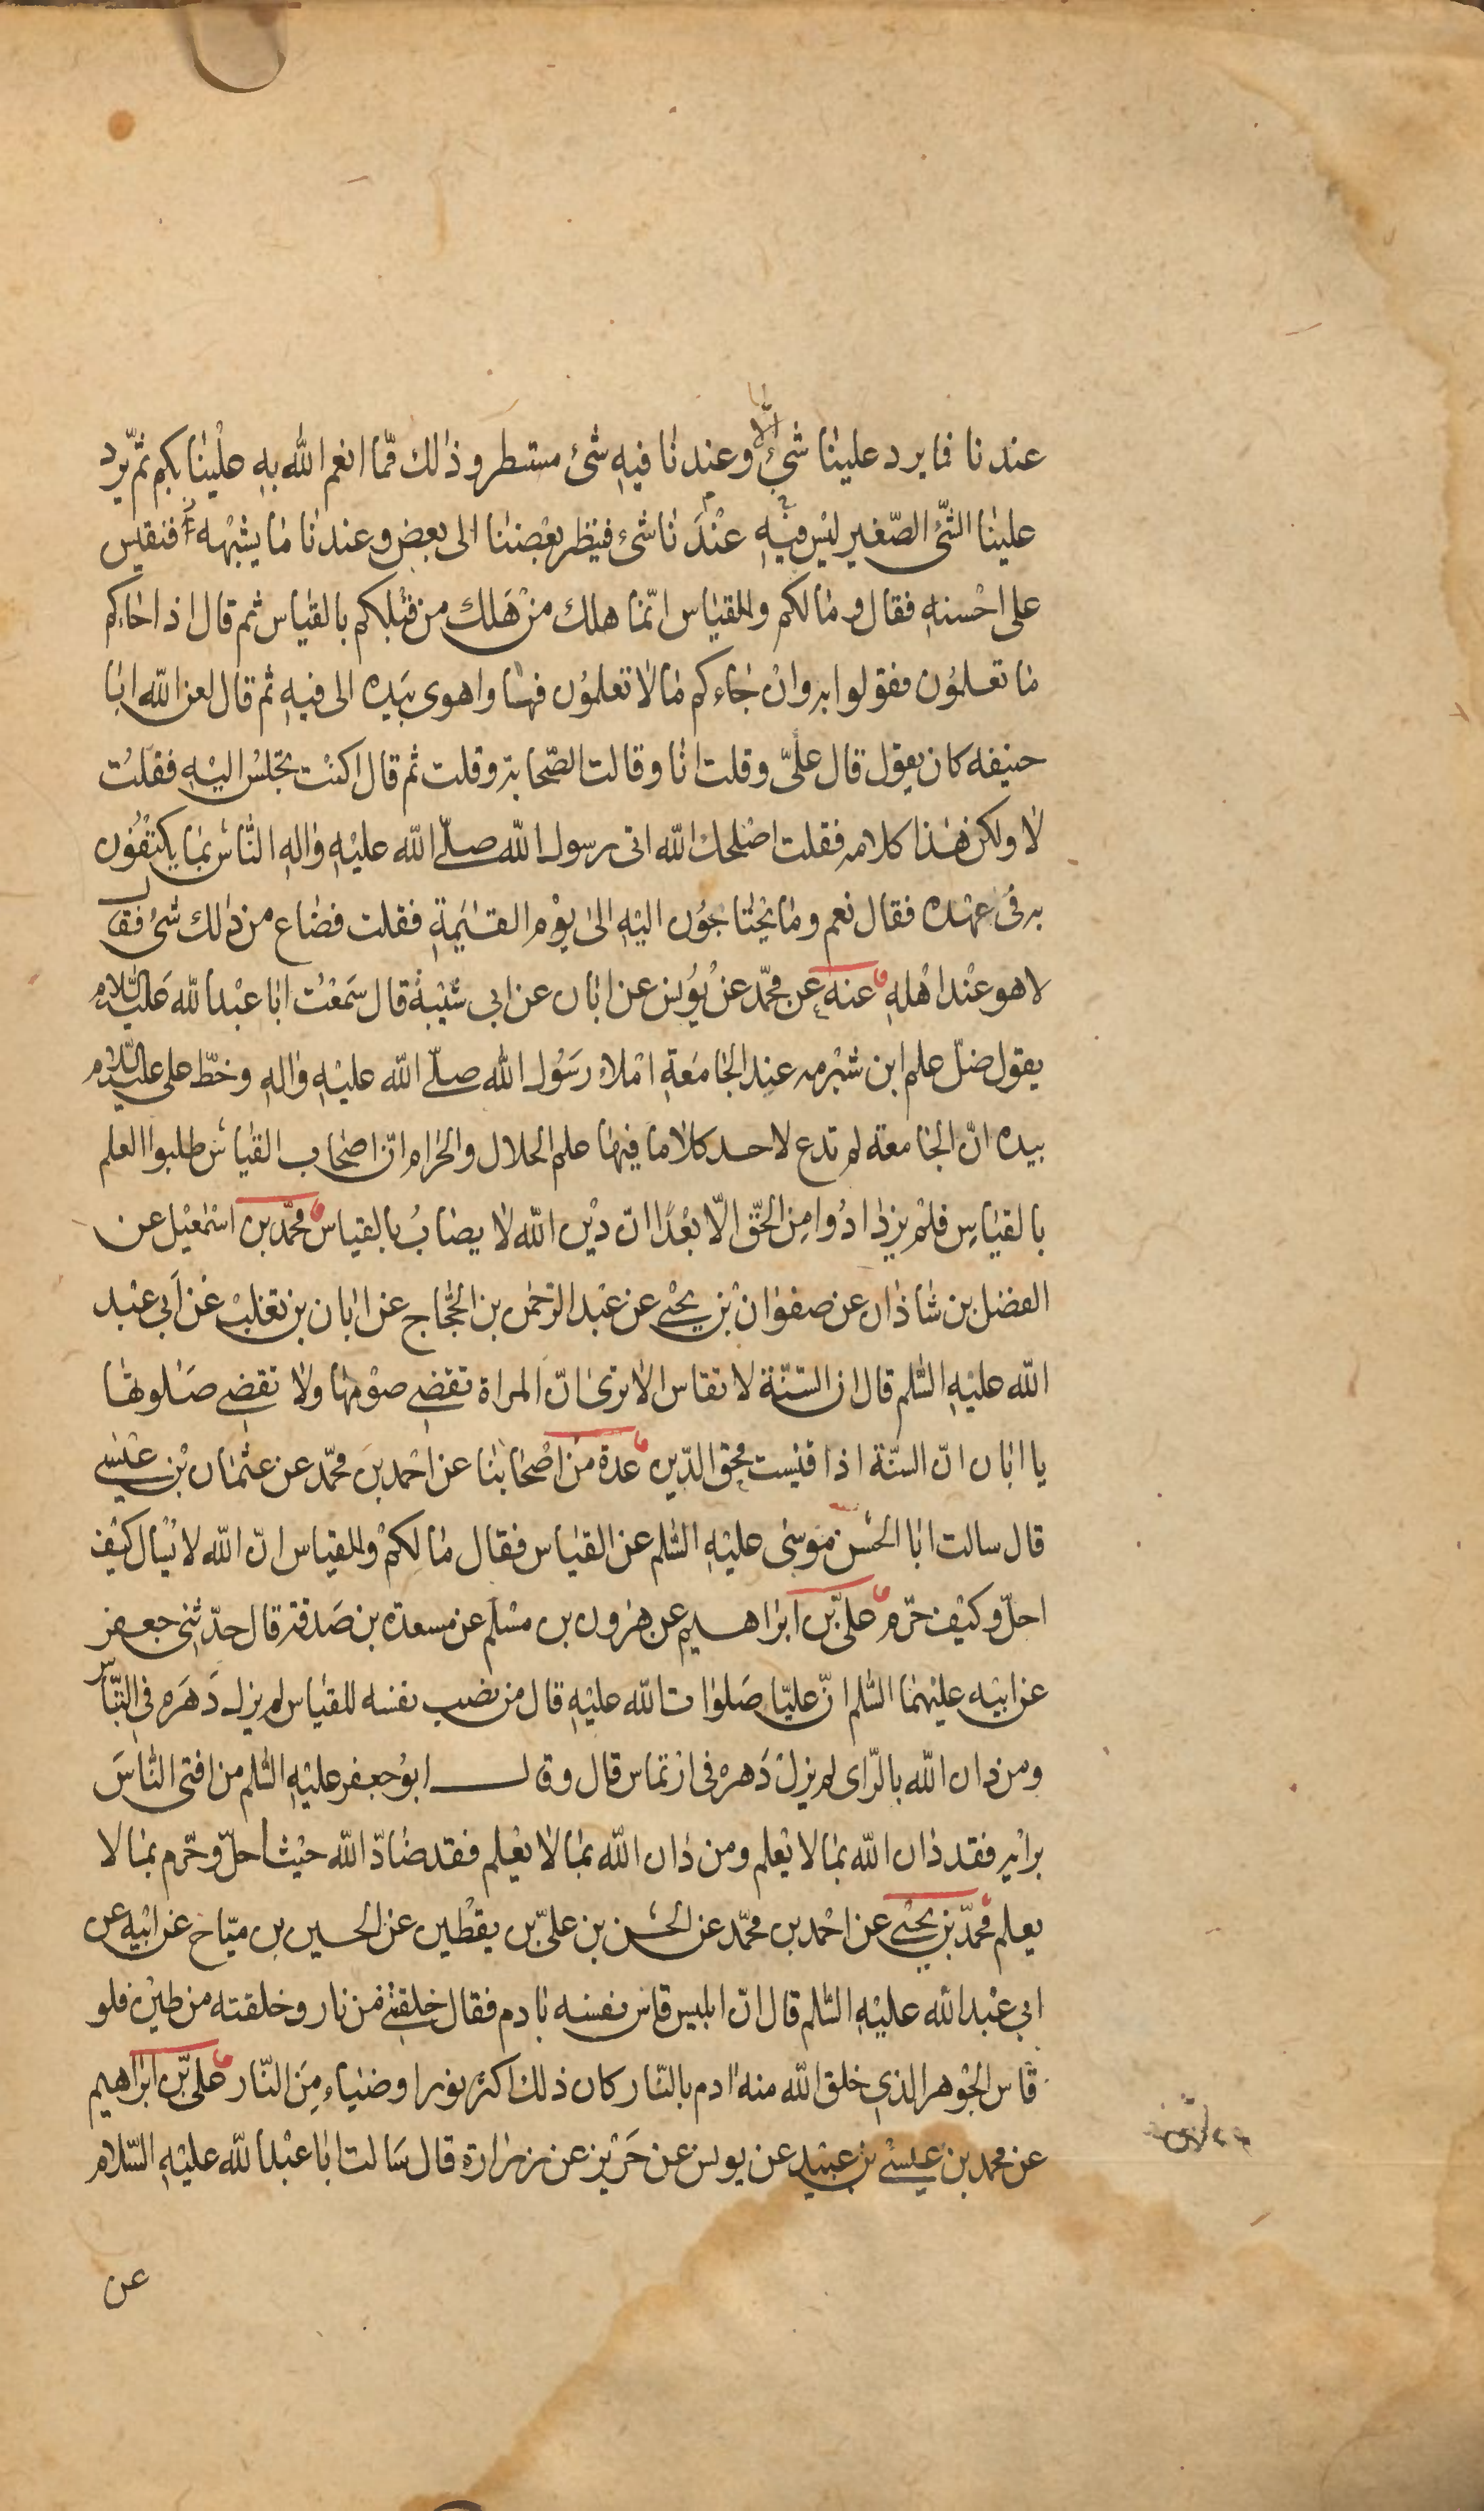 عندنا فما يرد علينا شئ الّا وعندنا فيه شئ مستطر وذلك ممّا انعم الله به علينا بكم ثم يرد
علينا الشّئ الصّغير ليس فيه عندنا شئ فينظر بعضنا الى بعض وعندنا ما يشبهه فنقيس
على احسنه فقال وما لكم وللقياس انّما هلك من هلك من قبلكم بالقياس ثم قال اذا جاءكم
ما تعلمون فقولوا به وان جاءكم ما لا تعلمون فها واهوى بيده الى فيه ثم قال لعن الله ابا
حنيفه كان يقول قال علىّ وقلت انا وقالت الصّحابة وقلت ثم قال اكنت تجلس اليه فقلت
لا ولكن هذا كلامه فقلت اصلحك الله اتى رسول الله صلّى الله عليه واله الناس بما يكتفون
به فى عهده فقال نعم وما يحتاجون اليه الى يوم القيمة فقلت فضاع من ذلك شئ فقال
لا هو عند اهله عنه عن محمّد عن يونس عن ابان عن ابى شيبة قال سمعت ابا عبد الله عليه السّلام
يقول ضلّ علم ابن شبرمه عند الجامعة املاء رسول الله صلّى الله عليه واله وخطّ على عليه السّلام
بيده انّ الجامعة لم تدع لاحد كلاما فيها علم الحلال والحرام انّ اصحاب القياس طلبوا العلم
بالقياس فلم يزدادوا من الحقّ الّا بعدا انّ دين الله لا يصاب بالقياس محمّد بن اسمعيل عن
الفضل بن شاذان عن صفوان بن يحيى عن عبد الرّحمن بن الحجّاج عن ابان بن تغلب عن ابى عبد
الله عليه السّلم قال ان السّنّة لا تقاس الا ترى انّ المراة تقضى صومها ولا تقضى صلوتها
يا ابان انّ السنّة اذا قيست محق الدّين عدة من اصحابنا عن احمد بن محمّد عن عثمان بن عيسى
قال سالت ابا الحسن موسى عليه السّلم عن القياس فقال ما لكم وللقياس انّ الله لا يسال كيف
احلّ وكيف حرّم علىّ بن ابراهيم عن هرون بن مسلم عن مسعدة بن صدقة قال حدّثنى جعفر
عن ابيه عليهما السّلم انّ عليّا صلوات الله عليه قال من نصب نفسه للقياس لم يزل دهره فى التباس
ومن دان الله بالرّاى لم يزل دهره فى ارتماس قال وقال ابو جعفر عليه السّلم من افتى الناس
برايه فقد دان الله بما لا يعلم ومن دان الله بما لا يعلم فقد ضادّ الله حيث احلّ وحرّم بما لا
يعلم محمّد بن يحيى عن احمد بن محمّد عن الحسن بن علىّ بن يقطين عن الحسين بن ميّاح عن ابيه عن
ابى عبد الله عليه السّلم قال انّ ابليس قاس نفسه بادم فقال خلقتنى من نار وخلقته من طين فلو
قاس الجوهر الذى خلق الله منه ادم بالنّار كان ذلك اكثر نورا وضياء من النّار علىّ بن ابراهيم
عن محمد بن عيسى بن عبيد عن يونس عن حريز عن زرارة قال سالت ابا عبد الله عليه السّلام
عن